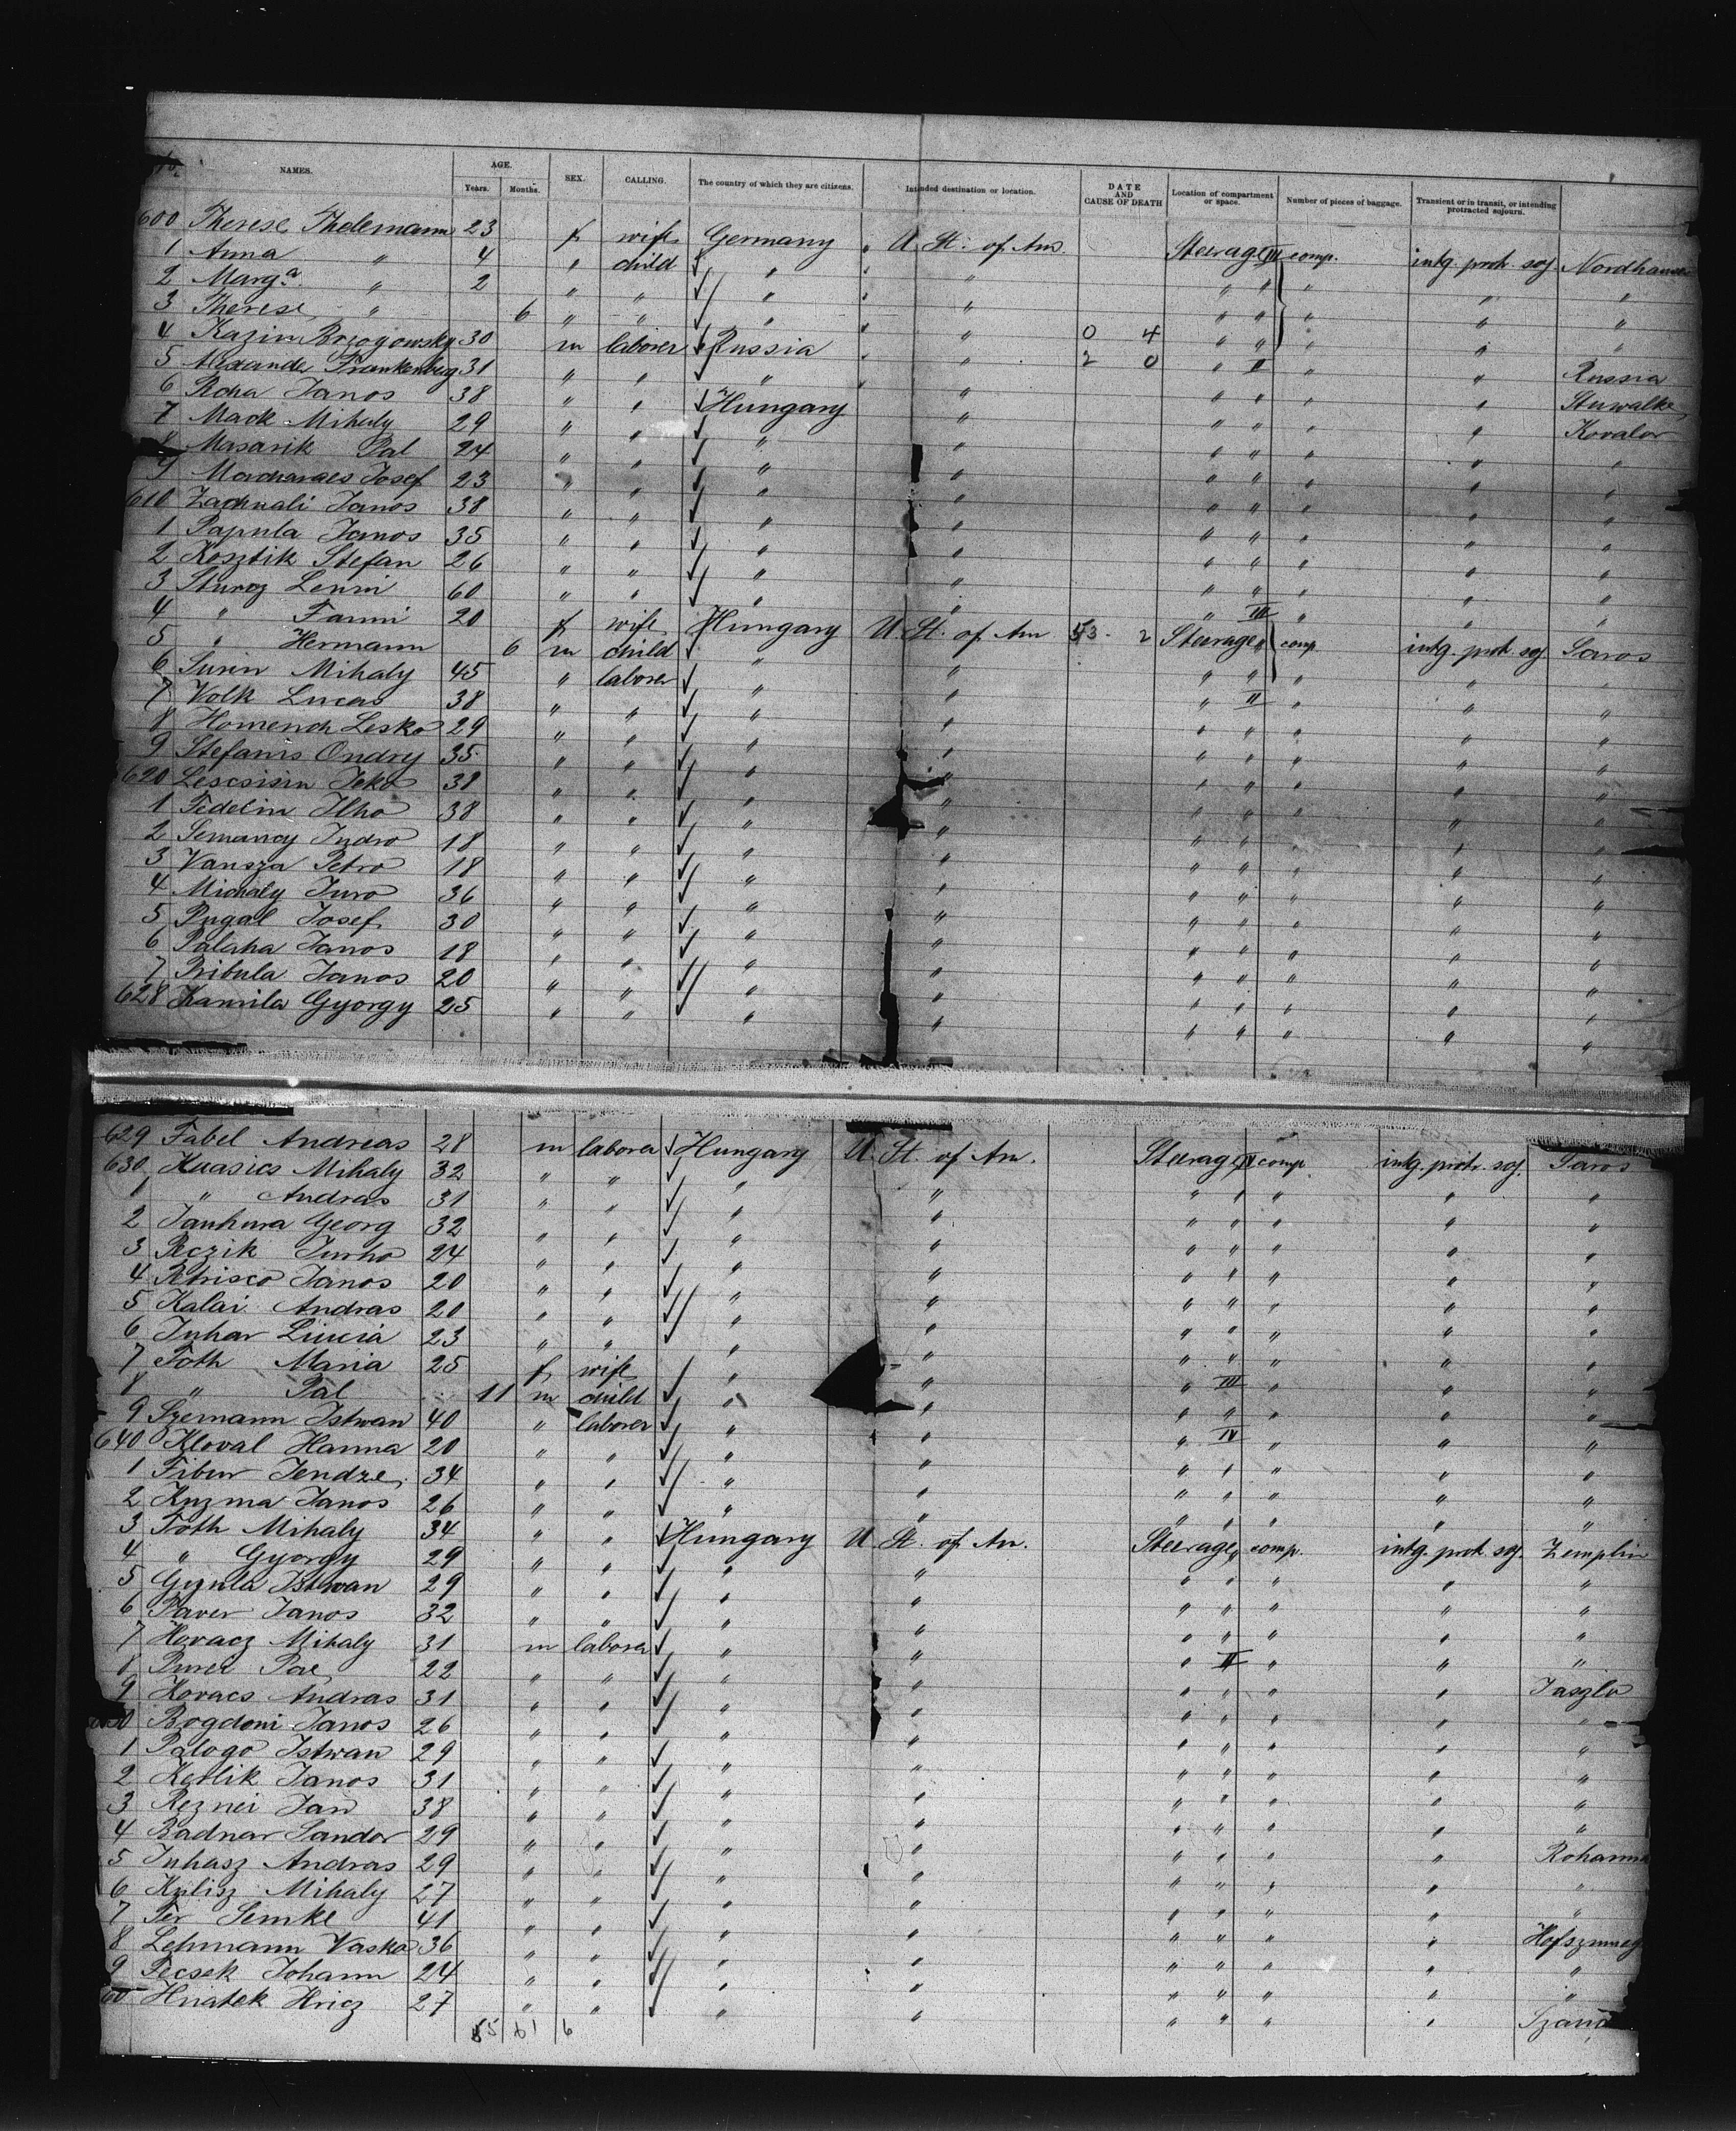 No. NAMES. AGE. Years. Months. SEX. CALLING. The country of which they are citizens. Intended destination or location. DATE AND CAUSE OF DEATH Location of compartment or space. Number of pieces of baggage. Transient or in transit, or intending protracted sojourn.
600 Therese Thelemann 23 f wife Germany U. St. of Am. Steerage III comp. intg. protr. soj. Nordhausen
1 Anna " 4 " child " " " " " " "
2 Marga " 2 " " " " " " " " "
3 Therese " 6 " " " " " " " " "
4 Kazim Rozogowsky 30 m laborer Russia " 0 4 " II " " Russia
5 Alexander Frankenberg 31 " " " " 2 0 " " " " Stuwalke
6 Roha Janos 38 " " Hungary " " " " " Kovalov
7 Mack Mihaly 29 " " " " " " " " "
8 Masarik Pal 24 " " " " " " " " "
9 Josef 23 " " " " " " " " "
610 Zachnali Janos 38 " " " " " " " " "
1 Papula Janos 35 " " " " " " " " "
2 Kosztik Stefan 26 " " " " " " " " "
3 60 " " " " " " " "
4 " Fanni 20 f wife Hungary U. St. of Am 53 - 2 Steerage III comp intg. protr. soj. Saros
5 " Hermann 6 m child " " " " " " "
6 Surin Mihaly 45 " laborer " " " II " " "
7 Volk Lucas 38 " " " " " " " " "
8 Homench Lesko 29 " " " " " " " " "
9 Stefanis Ondry 35 " " " " " " " " "
620 Jeko 38 " " " " " " " " "
1 Fedelin Ilko 38 " " " " " " " " "
2 Semancy Indro 18 " " " " " " " " "
3 Vansza Petro 18 " " " " " " " " "
4 Michaly Juro 36 " " " " " " " " "
5 Pugal Josef 30 " " " " " " " " "
6 Palaha Janos 18 " " " " " " " " "
7 Pribula Janos 20 " " " " " " " " "
628 Kamila Gyorgy 25 " " " " " " " " "
629 Fabel Andreas 28 m laborer Hungary U. St. of Am. Steerage II comp. intg. protr. soj. Saros
630 Kuasics Mihaly 32 " " " " " " " " "
1 " Andras 31 " " " " " " " " "
2 Janhura Georg 32 " " " " " " " " "
3 Peczik Jurko 24 " " " " " " " " "
4 Petrisco Janos 20 " " " " " " " " "
5 Kalai Andras 20 " " " " " " " " "
6 Juhar 23 " " " " " " " " "
7 Toth Maria 25 f wife " " " III " " "
8 " Pal 11 m child " " " " " " "
9 Szemann Istwan 40 " laborer " " " IV " " "
640 Kloval Hanna 20 " " " " " " " " "
1 Tibur Jendze 34 " " " " " " " " "
2 Kuzma Janos 26 " " " " " " " " "
3 Toth Mihaly 34 " " Hungary U. St. of Am. Steerage " comp. intg. protr. soj. Zemplin
4 " Gyorgy 29 " " " " " " " " "
5 Gyula Istwan 29 " " " " " " " " "
6 Paver Janos 32 " " " " " " " " "
7 Horacz Mihaly 31 m laborer " " " II " " "
8 22 " " " " " " " " Jaszlo
9 Kovacs Andras 31 " " " " " " " " "
650 Bogdoni Janos 26 " " " " " " " " "
1 Palogo Istwan 29 " " " " " " " " "
2 Kerlik Janos 31 " " " " " " " " "
3 Reznei Jan 38 " " " " " " " " "
4 Badnar Sandor 29 " " " " " " " " Rohanna
5 Juhasz Andras 29 " " " " " " " " "
6 Kulisz Mihaly 27 " " " " " " " " "
7 Fer Semke 41 " " " " " " " "
8 Lehmann Vasko 36 " " " " " " " " "
9 Pecsek Johann 24 " " " " " " " " "
60 Hnatek Hricz 27 " " " " " " " "
55 61 6